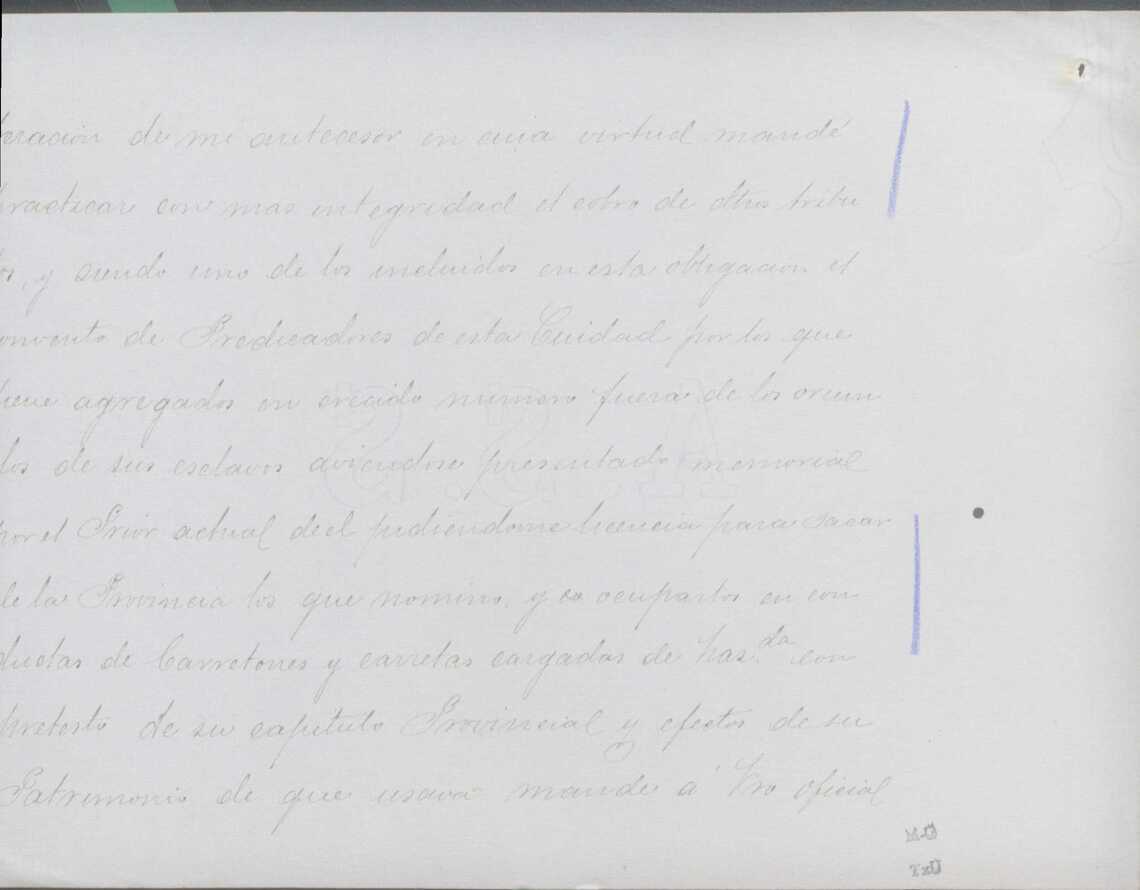 teracion de mi antecesor en cuia virtud mandé
practicar con mas integridad el cobro de dhos tribu
tos, y siendo uno de los incluidos en esta obligacion el
onvento de Predicadores de esta Cuidad por los que
tiene agregados en crecido numero fuera de los oriun
dos de sus esclavos aviendose presentado memorial
por el Prior actual de el pidiendome licencia para sacar
de la Provincia los que nomino, y ocuparlos en con
ductas de Carretones y carretas cargadas de haz.da con
pretesto de su capitulo Provincial y efectos de su
Patrimonio de que usava mande a Vro oficial